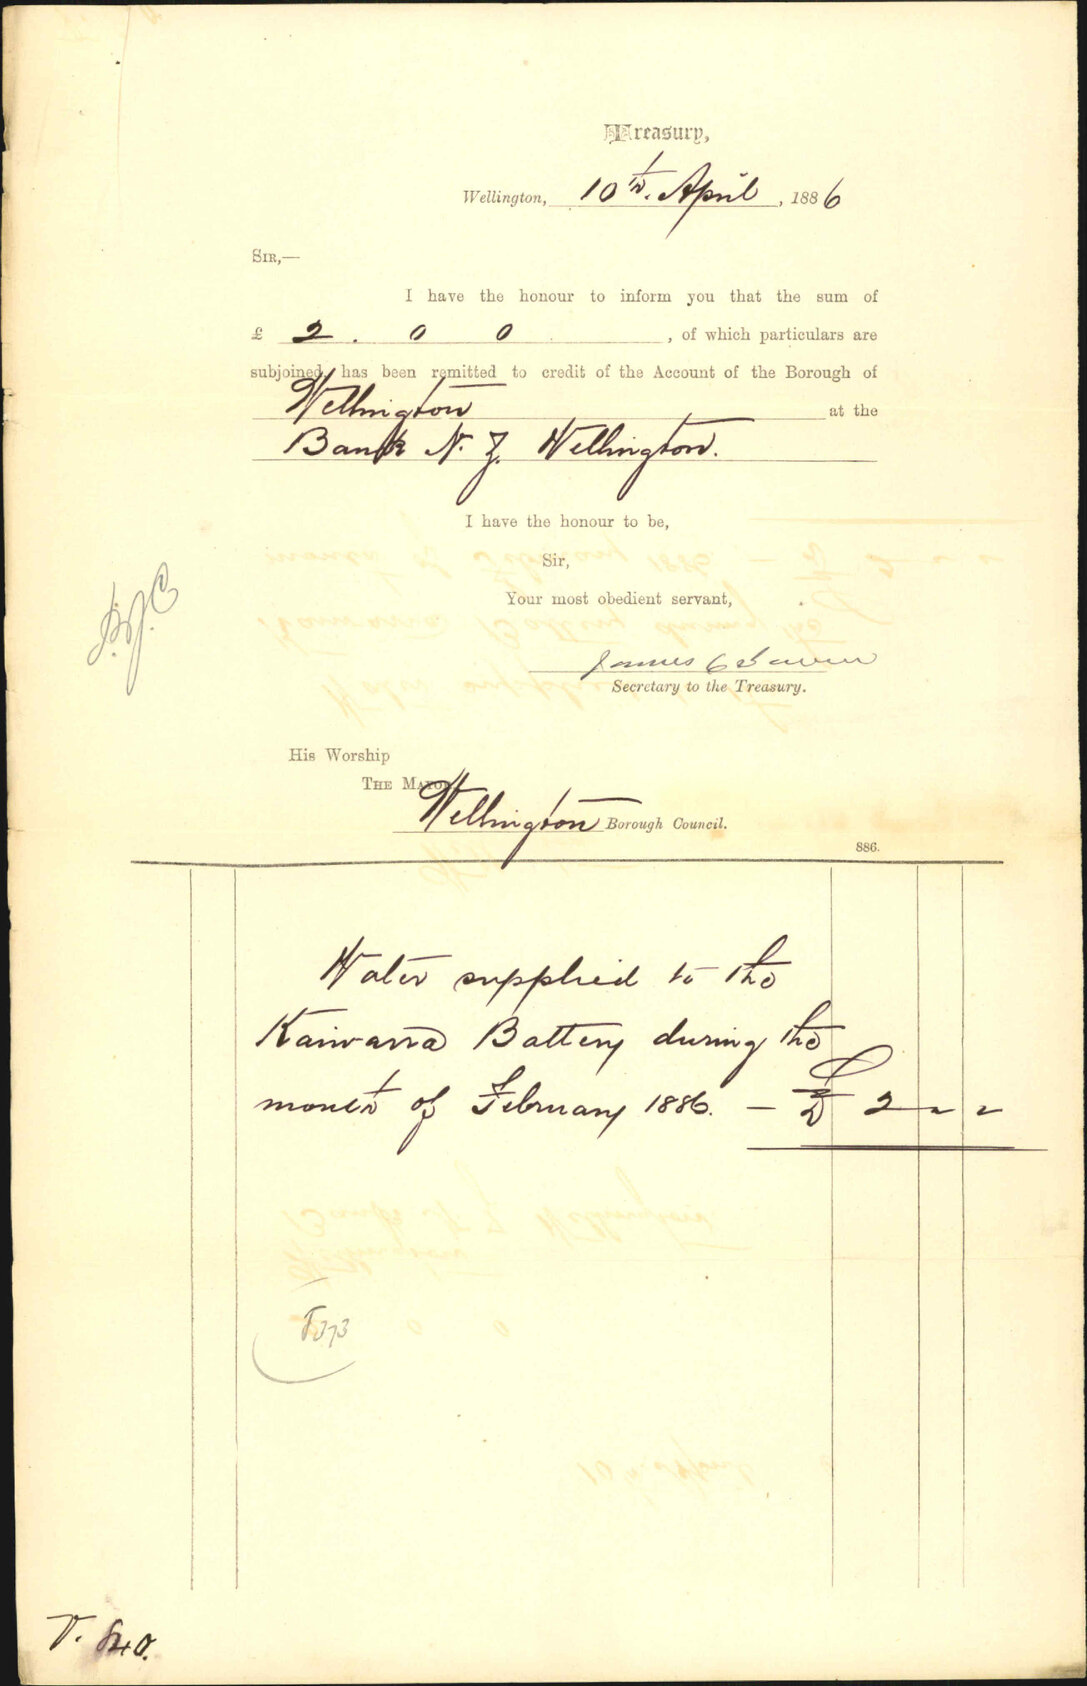 Treasury,
Wellington, 10th. April, 1886
SIR,—
I have the honour to inform you that the sum of
£ 2 . 0 0 , of which particulars are
subjoined, has been remitted to credit of the Account of the Borough of
Wellington at the
Bank N. Z. Wellington.
I have the honour to be,
Sir,
Your most obedient servant,
James C Gavin
Secretary to the Treasury.
His Worship
THE MAYOR
Wellington Borough Council.
886.
Water supplied to the
Kaiwarra Battery during the
month of February 1886. — £ 2 " "
T. 840.